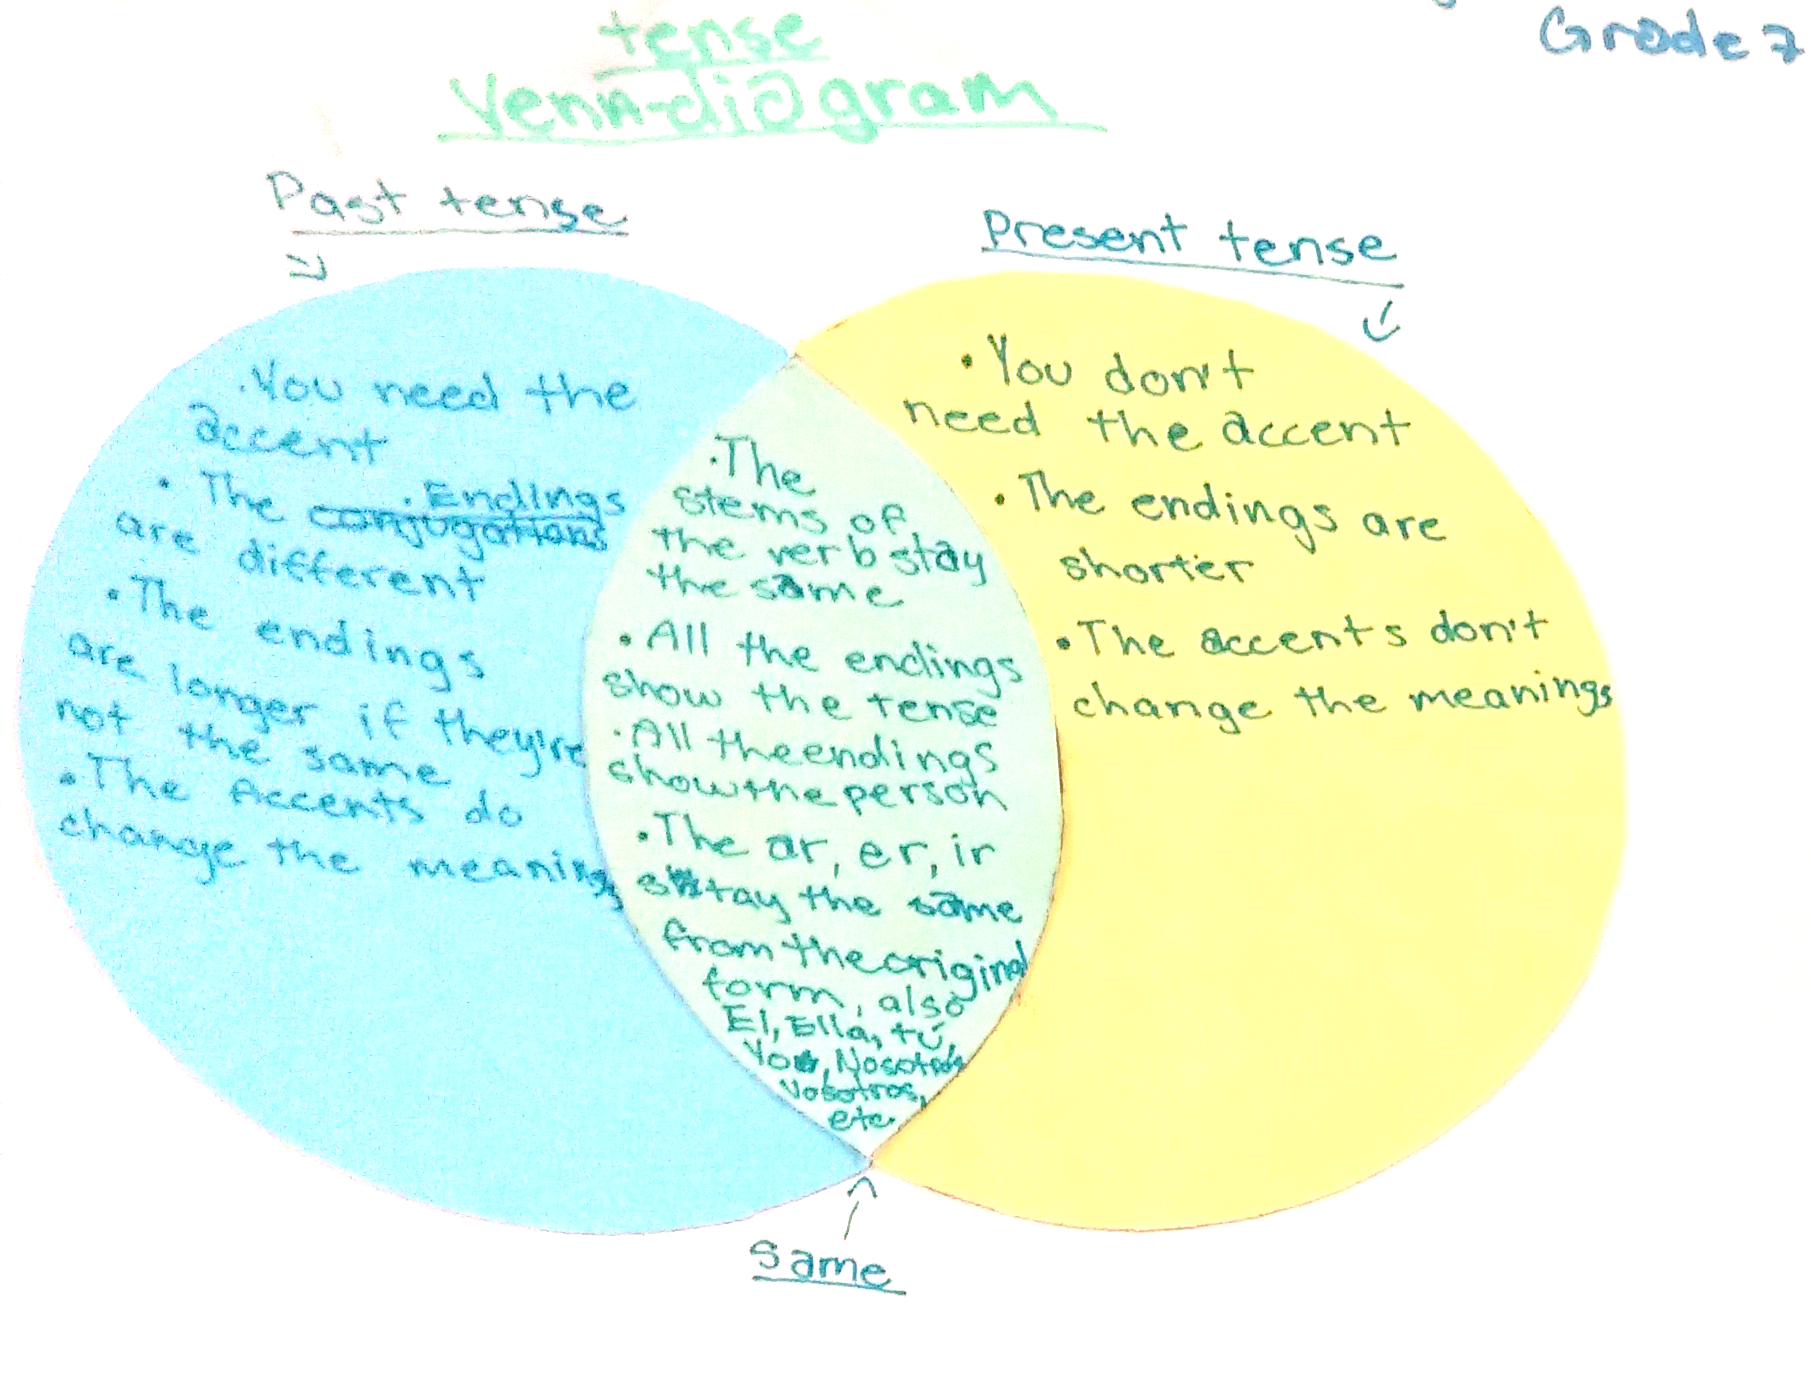 Grade 7
tense
Venn-diagram
Past tense
Present tense
• You need the
accent
• The • Endings
are different
• The endings
are longer if they're
not the same
• The Accents do
change the meanings
• The
stems of
the verb stay
the same
• All the endings
show the tense
• All the endings
show the person
• The ar, er, ir
stay the same
from the original
form, also
El, Ella, tú,
Yo, Nosotros,
Vosotros,
etc.
• You don't
need the accent
• The endings are
shorter
• The accents don't
change the meanings
Same